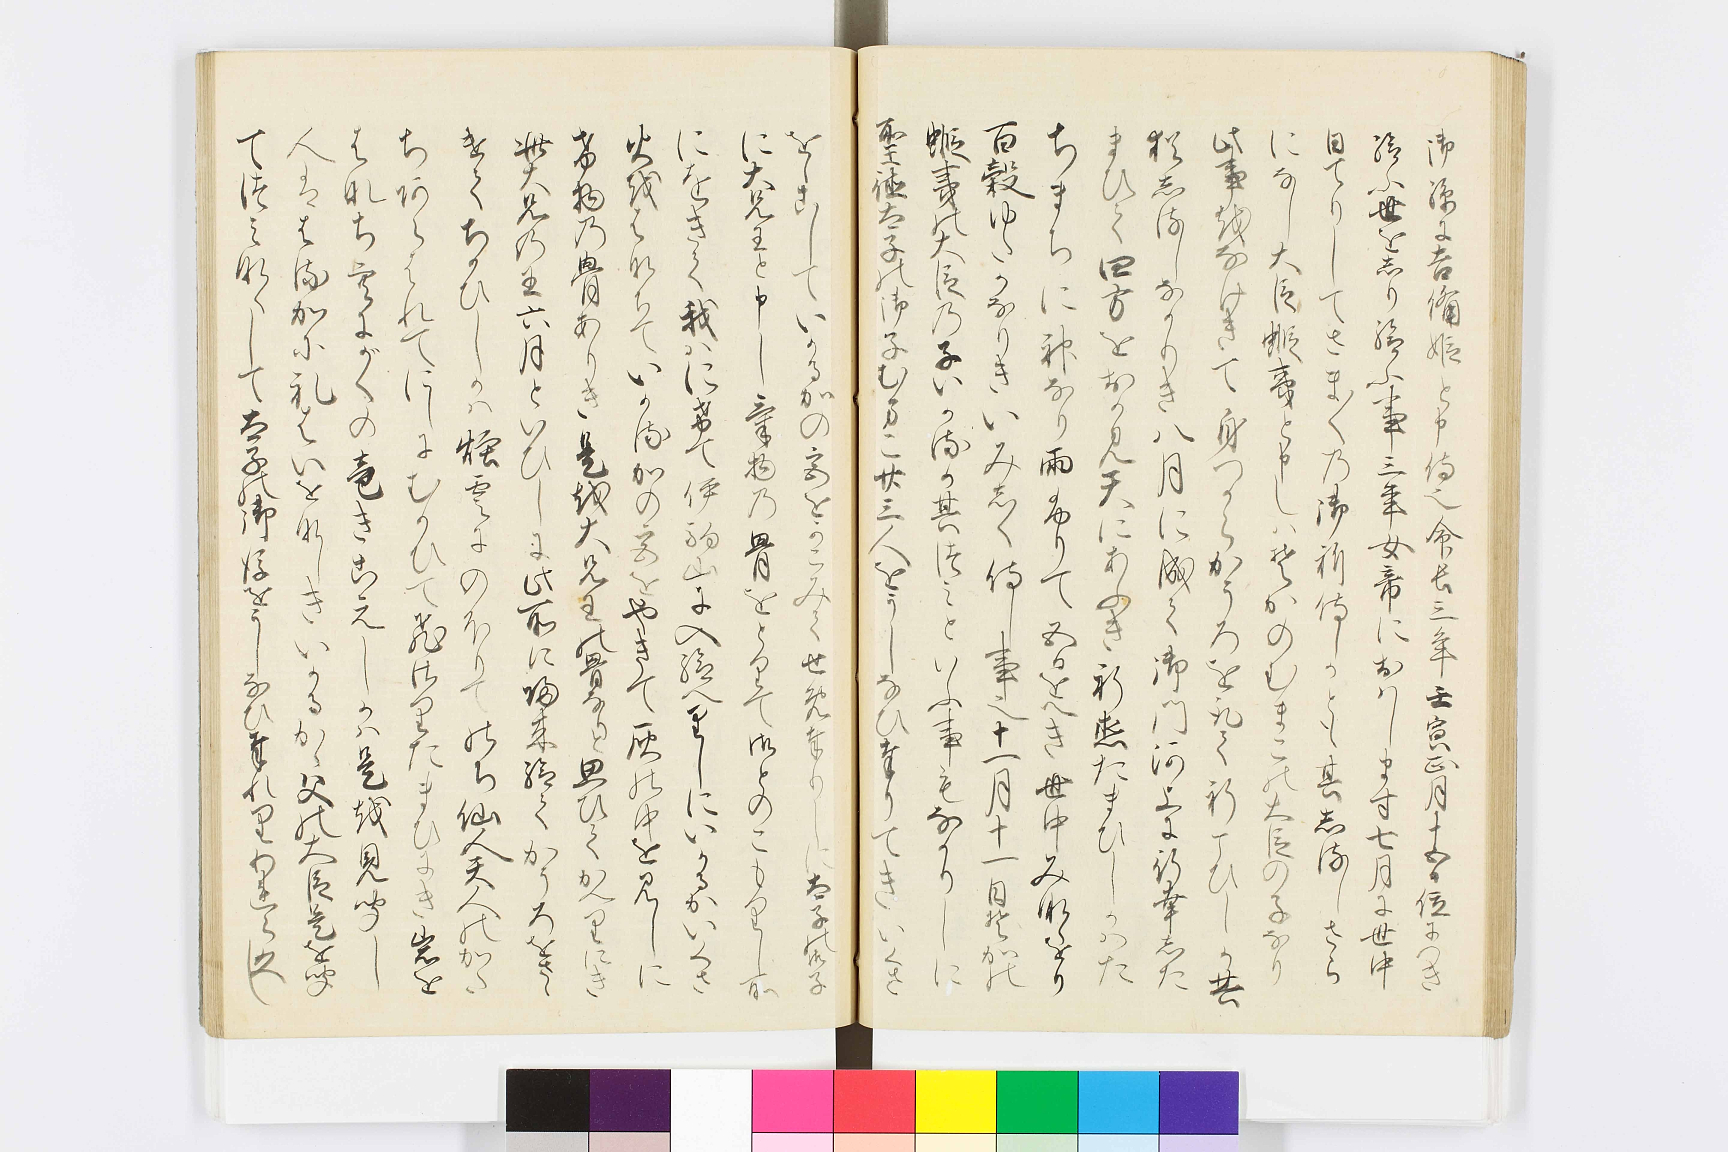 御源に吉備姫と申侍也命長三年壬寅正月十五日位につき
給ふ世をしり給ふ事三年女帝におはします七月に世中
日てりしてさま〳〵乃御祈侍しかとも其志るしさら
になし大臣蝦夷と申しは蘇かのむまこの大臣の子なり
此事越なけきて身つからかうろを取て祈こひしか共
猶志るしなかりき八月に成て御門河上に行幸した
まひて四方をおかみ天にあふき祈請たまひしかはた
ちまちに神なり雨ふりて五日をへき世中み那なをり
百穀ゆたかなりきいみしく侍し事也十一月十一日蘇加の
蝦夷の大臣乃子いるか其つみといふ事もなかりしに
聖徳太子の御子むまこ廿三人をうしなひ奉りてきいくさ
をおこしていかるかの宮をかこみてせめ奉りしに太子の御子
に大兄王と申し　獣物乃骨をとりて御とのこもりし所
におきて我はにけて伊駒山に入給へりしにいくさ
火越はなちていかるかの宮をやきて灰の中を見しに
者物乃骨ありき是越大兄王の骨なりと思ひてかへりにき
此大兄乃王六月といひしに此所に帰来給てかうろをさゝ
けてちかひしかは煙雲にのほりてのち仙人天人のかた
ちあらはれてにしにむかひて飛さりたまひにき光を
はなち空にかくの音きこえしかは是越見聞し
人はるかに礼はいをなしきいるかゝ父の大臣是を聞
てつみなくして太子の御後をうしなひ奉れりわれら久し